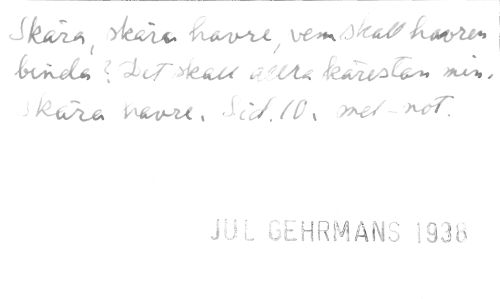 Skära, skära havre, vem skall havren
binda? Det skall allra kärestan min.
Skära havre. Sid. 10. mel-not.
JUL GEHRMANS 1938